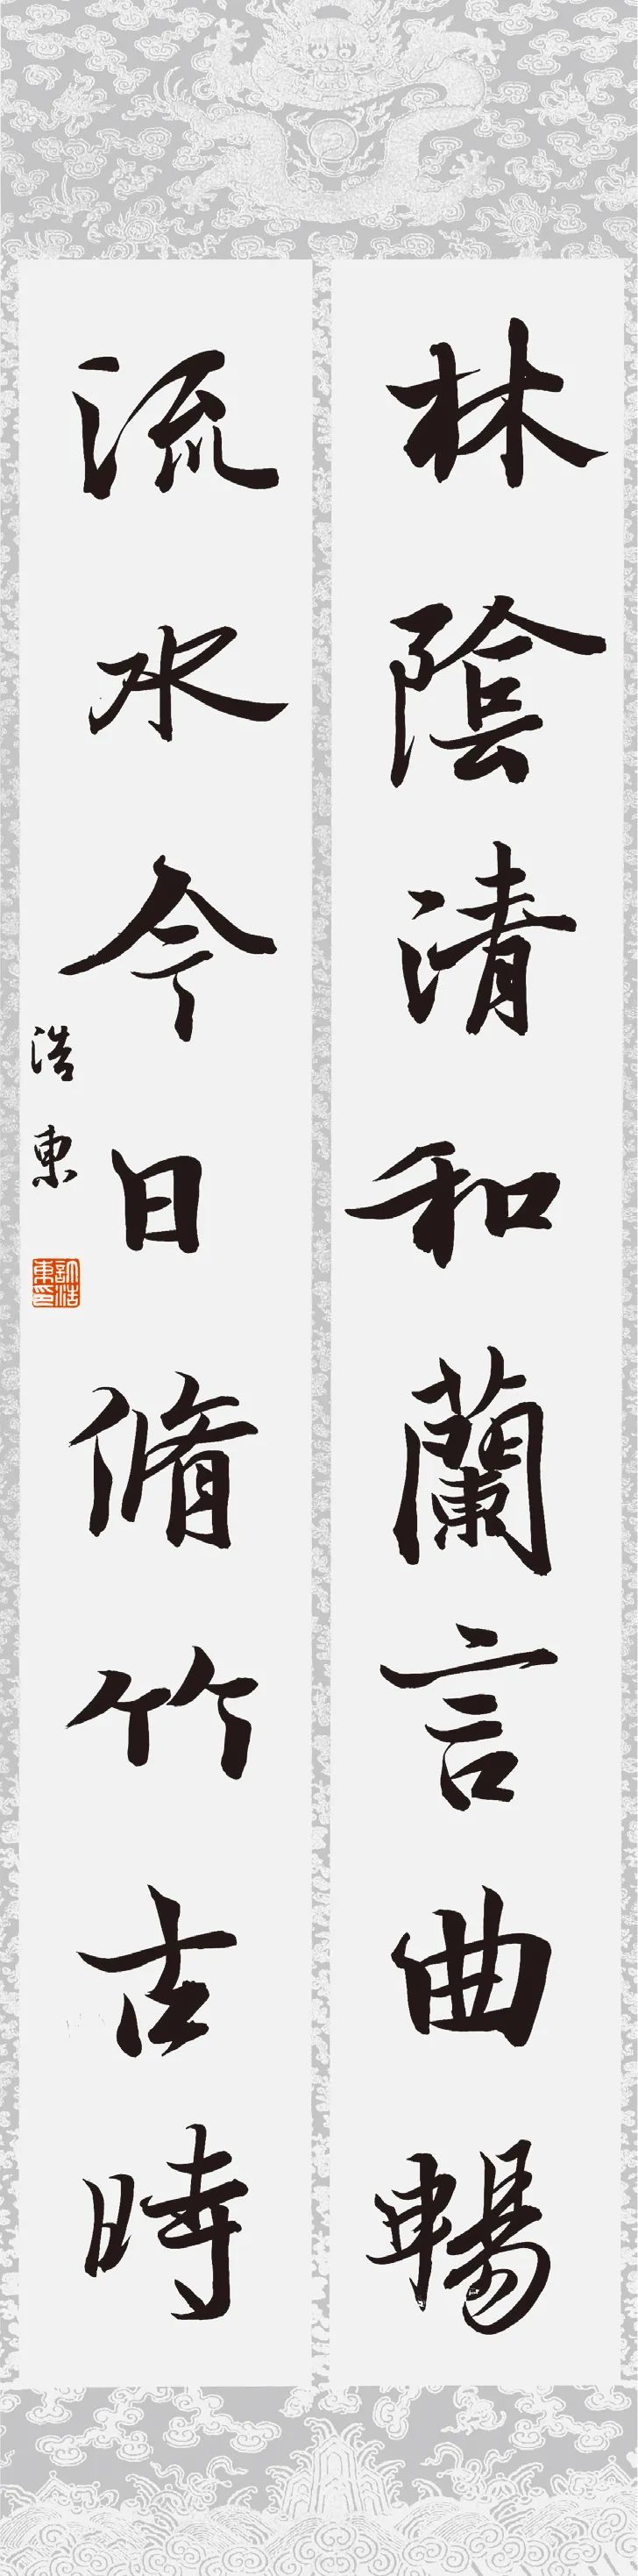 林陰清和蘭言曲暢
流水今日脩竹古時
浩東